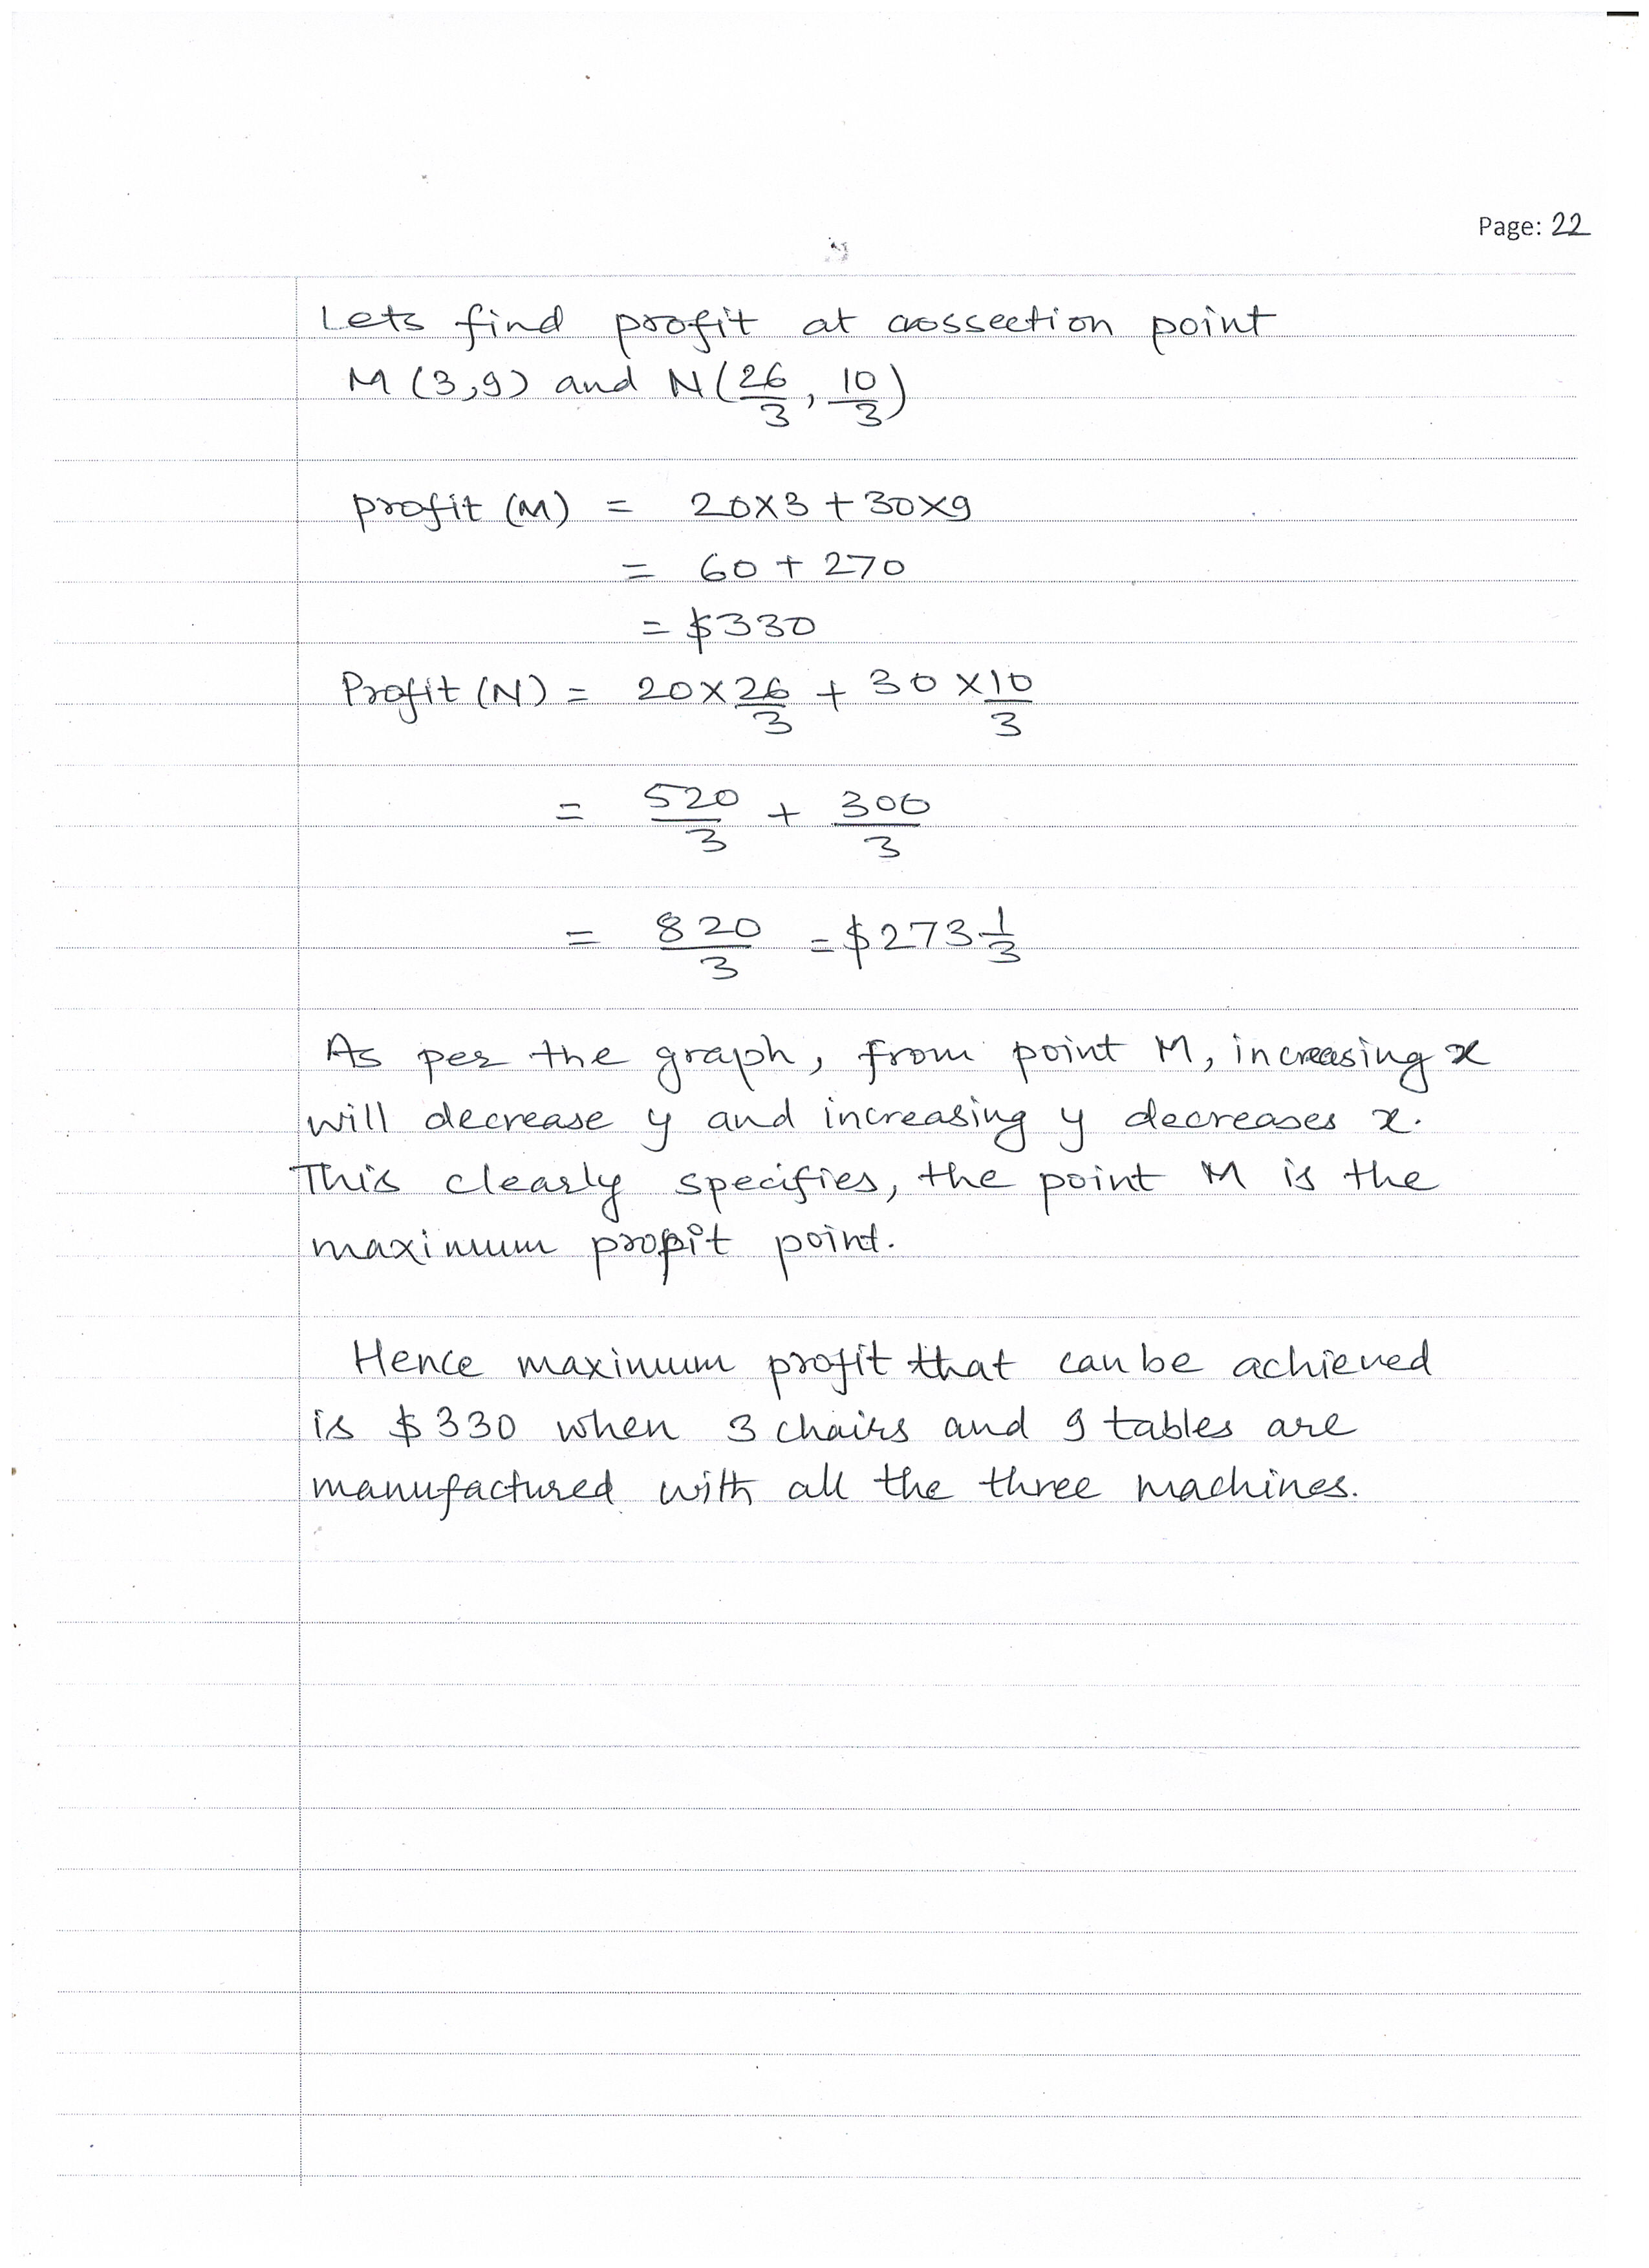 Page: 22
Lets find profit at crossection point
M (3,9) and N(26/3, 10/3)
profit (M) = 20×3 + 30×9
= 60 + 270
= $330
Profit (N) = 20×26/3 + 30×10/3
= 520/3 + 300/3
= 820/3 = $273 1/3
As per the graph, from point M, increasing x
will decrease y and increasing y decreases x.
This clearly specifies, the point M is the
maximum profit point.
Hence maximum profit that can be achieved
is $330 when 3 chairs and 9 tables are
manufactured with all the three machines.